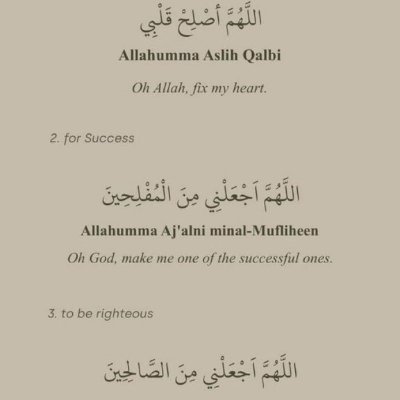 اللَّهُمَّ أَصْلِحْ قَلْبِي
Allahumma Aslih Qalbi
Oh Allah, fix my heart.
2. for Success
اللَّهُمَّ اَجْعَلْنِي مِنَ الْمُفْلِحِينَ
Allahumma Aj'alni minal-Mufliheen
Oh God, make me one of the successful ones.
3. to be righteous
اللَّهُمَّ اَجْعَلْنِي مِنَ الصَّالِحِينَ